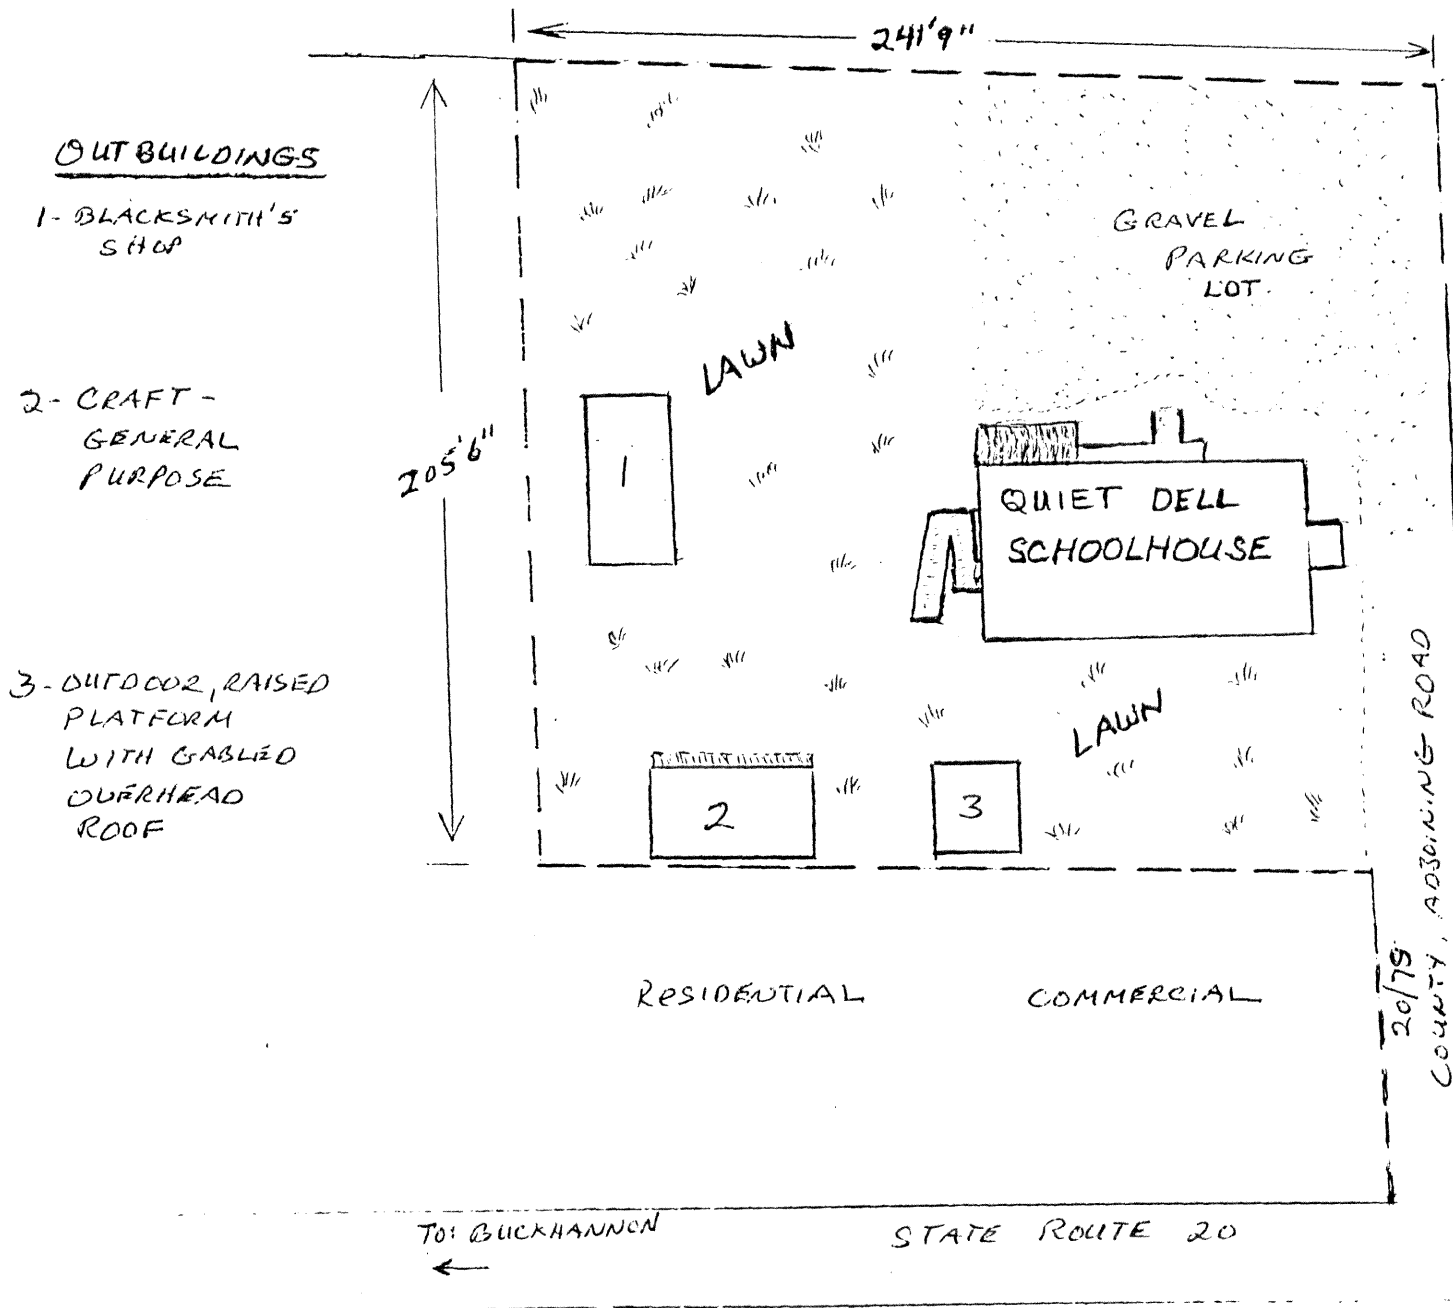 241'9"
OUTBUILDINGS
1- BLACKSMITH'S
SHOP
2- CRAFT-
GENERAL
PURPOSE
3-OUTDOOR, RAISED
PLATFORM
WITH GABLED
OVERHEAD
ROOF
205'6"
LAWN
GRAVEL
PARKING
LOT.
1
QUIET DELL
SCHOOLHOUSE
LAWN
2
3
RESIDENTIAL
COMMERCIAL
20/78
COUNTY, ADJOINING ROAD
TO: BUCKHANNON
←
STATE ROUTE 20